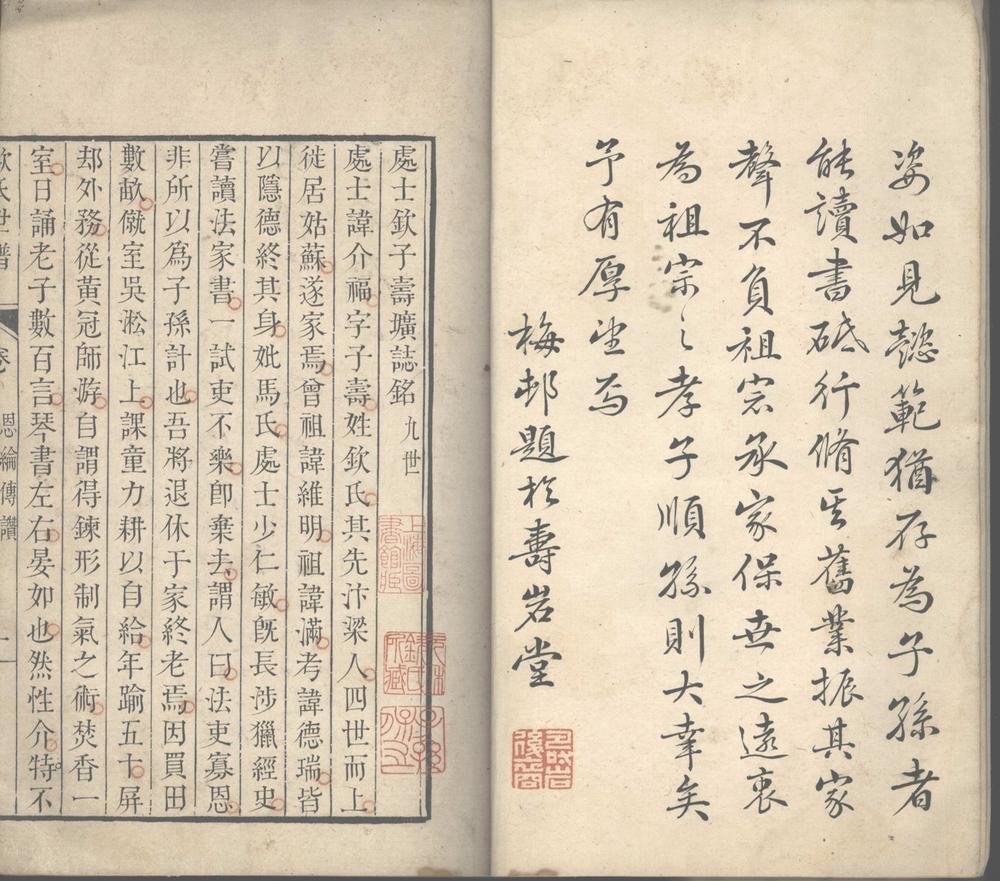 姿如見懿範猶存為子孫者
能讀書砥行脩其舊業振其家
聲不負祖宗承家保世之遠衷
為祖宗之孝子順孫則大幸矣
予有厚望焉
梅邨題於壽岩堂
處士欽子壽壙誌銘 九世
處士諱介福字子壽姓欽氏其先汴梁人四世而上
徙居姑蘇遂家焉曾祖諱維明祖諱滿考諱德瑞皆
以隱德終其身妣馬氏處士少仁敏旣長涉獵經史
嘗讀法家書一試吏不樂卽棄去謂人曰法吏寡恩
非所以為子孫計也吾將退休于家終老焉因買田
數畝僦室吳淞江上課童力耕以自給年踰五十屏
却外務從黃冠師游自謂得鍊形制氣之術焚香一
室日誦老子數百言琴書左右晏如也然性介特不
欽氏世譜 卷 恩綸傳讚 一